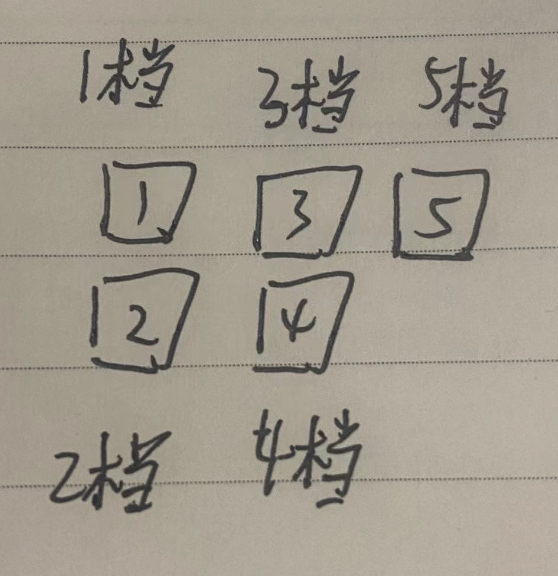 1档 3档 5档
1 3 5
2 4
2档 4档